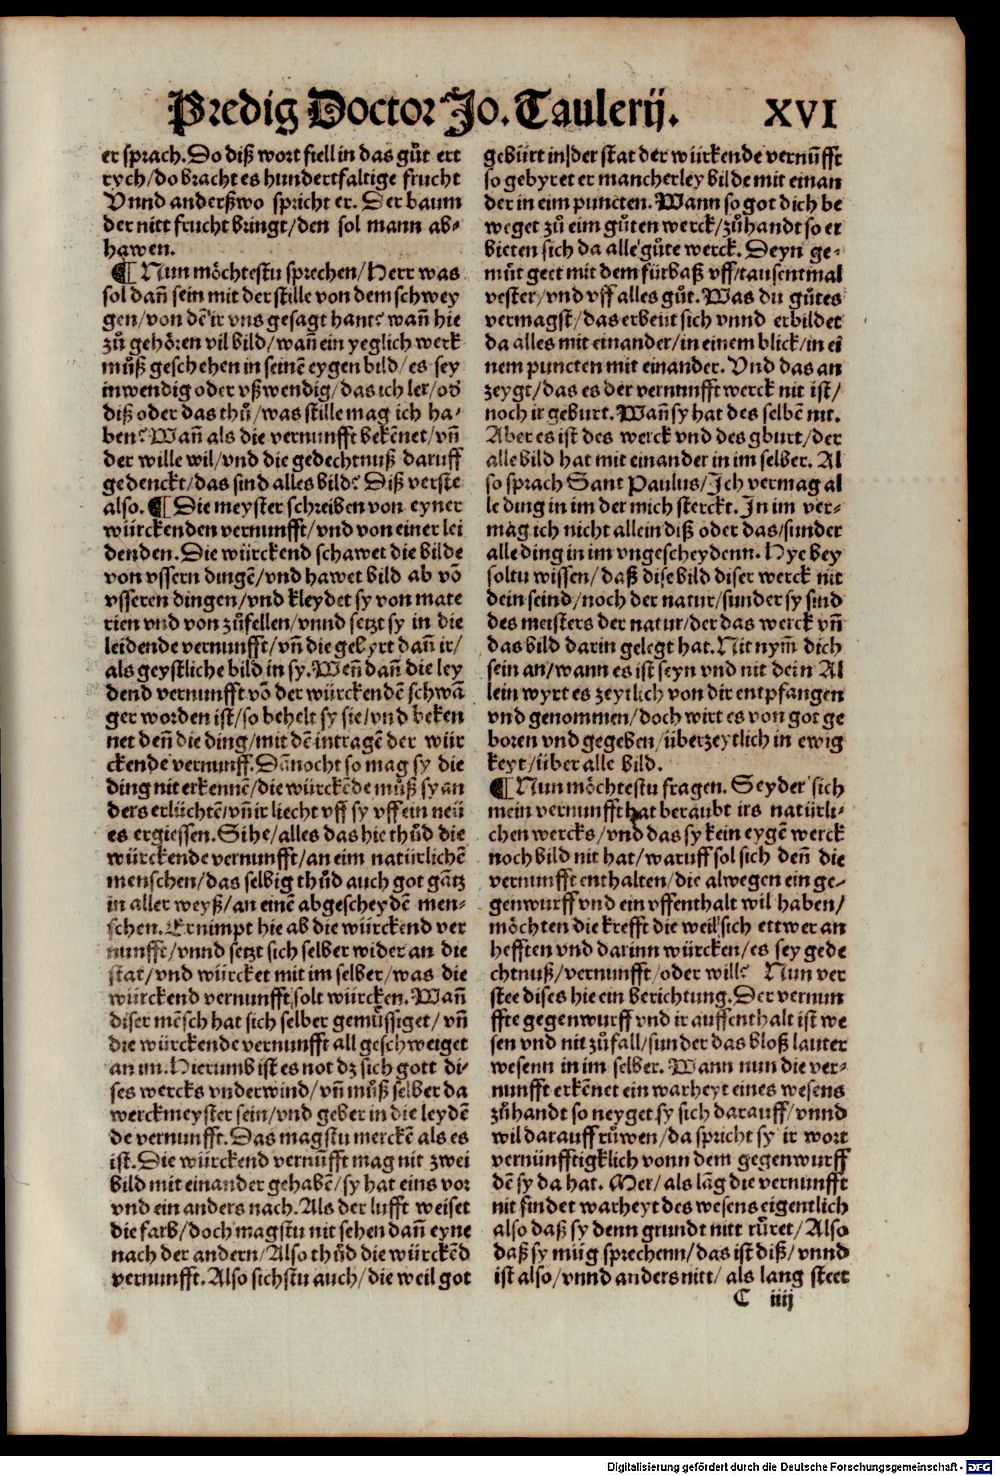 Predig Doctor Jo. Taulerij. XVI
er sprach. Do diß wort fiell in das gůt ert
rych/do bracht es hundertfaltige frucht
Vnnd anderßwo spricht er. Der baum
der nitt frucht bringt/den sol mann ab-
hawen.
¶ Nun möchtestu sprechen/Herr was
sol dañ sein mit der stille von dem schwey
gen/von dē ir vns gesagt hant? wañ hie
zů gehören vil bild/wañ ein yeglich werk
můß geschehen in seinē eygen bild/es sey
inwendig oder vßwendig/das ich ler/od̄
diß oder das thů/was stille mag ich ha-
ben? Wañ als die vernunfft bekēnet/vñ
der wille wil/vnd die gedechtnuß daruff
gedenckt/das sind alles bild? Diß verste
also. ¶ Die meyster schreiben von eyner
würckenden vernunfft/vnd von einer lei
denden. Die würckend schawet die bilde
von vssern dingē/vnd hawet bild ab vō
vsseren dingen/vnd kleydet sy von mate
rien vnd von zůfellen/vnnd setzt sy in die
leidende vernunfft/vñ die gebyrt dañ ir/
als geystliche bild in sy. Weñ dañ die ley
dend vernunfft vō der würckendē schwā
ger worden ist/so behelt sy sie/vnd beken
net deñ die ding/mit dē intragē der wür
ckende vernunff. Dānocht so mag sy die
ding nit erkennē/die würckēde můß sy an
ders erlüchtē/vñ ir liecht vff sy vff ein neü
es ergiessen. Sihe/alles das hie thůd die
würckende vernunfft/an eim natürlichē
menschen/das selbig thůd auch got gātz
in aller weyß/an einē abgescheyden men-
schen. Er nimpt hie ab die würckend ver
nunfft/vnnd setzt sich selber wider an die
stat/vnd würcket mit im selber/was die
würckend vernunfft solt würcken. Wañ
diser mēsch hat sich selber gemüssiget/vñ
die würckende vernunfft all geschweiget
an im. Hierumb ist es not dz sich gott di-
ses wercks vnderwind/vñ můß selber da
werckmeyster sein/vnd geber in die leydē
de vernunfft. Das magstu merckē als es
ist. Die würckend vernūfft mag nit zwei
bild mit einander gehabē/sy hat eins vor
vnd ein anders nach. Als der lufft weiset
die farb/doch magstu nit sehen dañ eyne
nach der andern/Also thůd die würckēd
vernunfft. Also sichstu auch/die weil got
gebürt in der stat der würkende vernūfft
so gebyret er mancherley bilde mit einan
der in eim puncten. Wann so got dich be
weget zů eim gůten werck/zůhandt so er
bieten sich da alle gůte werck. Deyn ge-
můt geet mit dem fürbaß vff/tausentmal
vester/vnd vff alles gůt. Was du gůtes
vermagst/das erbeüt sich vnnd erbildet
da alles mit einander/in einem blick/in ei
nem puncten mit einander. Vnd das an
zeygt/das es der vernunfft werck nit ist/
noch ir geburt. Wañ sy hat des selbē nit.
Aber es ist des werck vnd des gburt/der
alle bild hat mit einander in im selber. Al
so sprach Sant Paulus/Ich vermag al
le ding in im der mich sterckt. In im ver-
mag ich nicht allein diß oder das/sunder
alle ding in im vngescheydenn. Hye bey
soltu wissen/daß dise bild diser werck nit
dein seind/noch der natur/sunder sy sind
des meisters der natur/der das werck vñ
das bild darin gelegt hat. Nit nym̄ dich
sein an/wann es ist seyn vnd nit dein Al
lein wyrt es zeytlich von dir entpfangen
vnd genommen/doch wirt es von got ge
boren vnd gegeben/überzeytlich in ewig
keyt/über alle bild.
¶ Nun möchtestu fragen. Seyder sich
mein vernunfft hat beraubt irs natürli-
chen wercks/vnd das sy kein eygē werck
noch bild nit hat/waruff sol sich deñ die
vernunfft enthalten/die alwegen ein ge-
genwurff vnd ein vffenthalt wil haben/
möchten die krefft die weil sich ettwer an
hefften vnd darinn würcken/es sey gede
chtnuß/vernunfft/oder will? Nun ver
stee dises hie ein berichtung. Der vernun
ffte gegenwurff vnd ir auffenthalt ist we
sen vnd nit zůfall/sunder das bloß lauter
wesenn in im selber. Wann nun die ver-
nunfft erkēnet ein warheyt eines wesens
zůhandt so neyget sy sich darauff/vnnd
wil darauff růwen/da spricht sy ir wort
vernünfftigklich vonn dem gegenwurff
dē sy da hat. Mer/als lāg die vernunfft
nit findet warheyt des wesens eigentlich
also daß sy denn grundt nitt rüret/Also
daß sy müg sprechenn/das ist diß/vnnd
ist also/vnnd anders nitt/als lang steet
C iiij
Digitalisierung gefördert durch die Deutsche Forschungsgemeinschaft - DFG